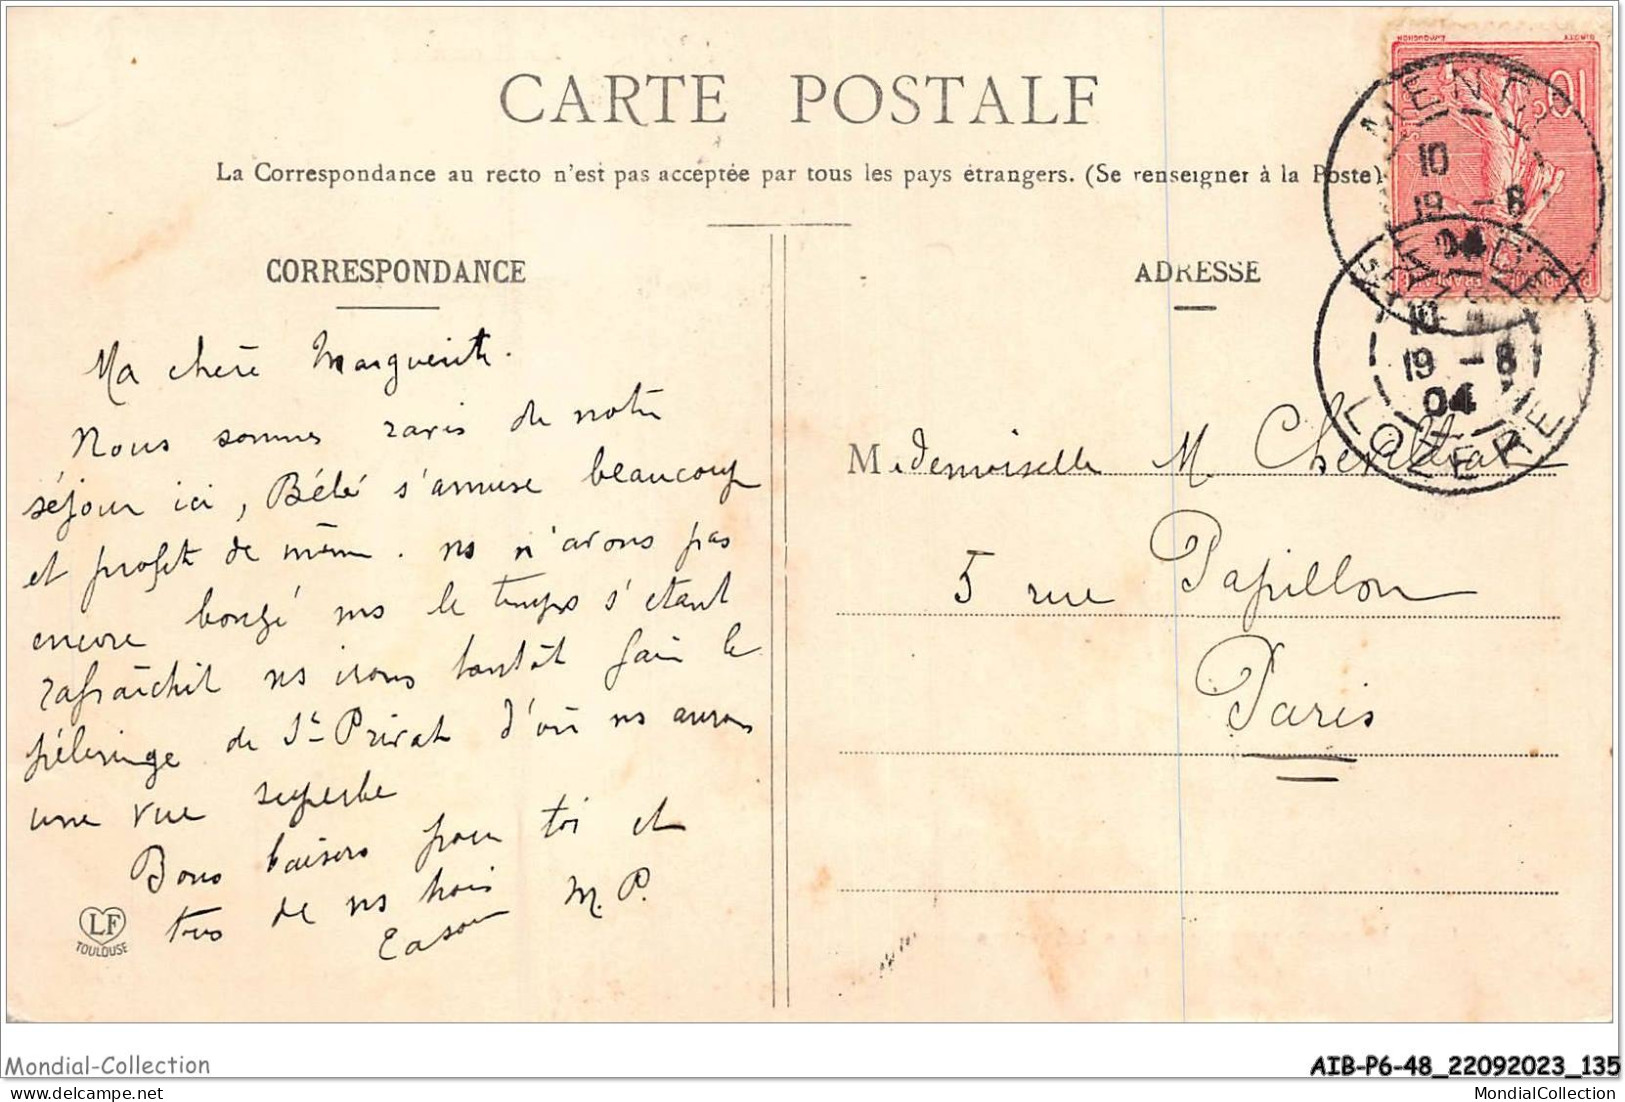 CARTE POSTALE
La Correspondance au recto n'est pas acceptée par tous les pays étrangers. (Se renseigner à la Poste)
CORRESPONDANCE
Ma chère Marguerite.
Nous sommes ravis de notre
séjour ici, Bébé s'amuse beaucoup
et profite de même. ns n'avons pas
encore bougé ms le temps s'étant
rafraîchit ns irons tantôt faire le
pèlerinage de St Privat d'où ns aurons
une vue superbe
Bons baisers pour toi et
tous de ns trois
M. P.
LF
TOULOUSE
ADRESSE
Mademoiselle M.
5 rue Papillon
Paris
10c
MENDE
10
19 -8
04
MENDE
10
19 -8
04
LOZERE
Mondial-Collection
AIB-P6-48_22092023_135
MondialCollection